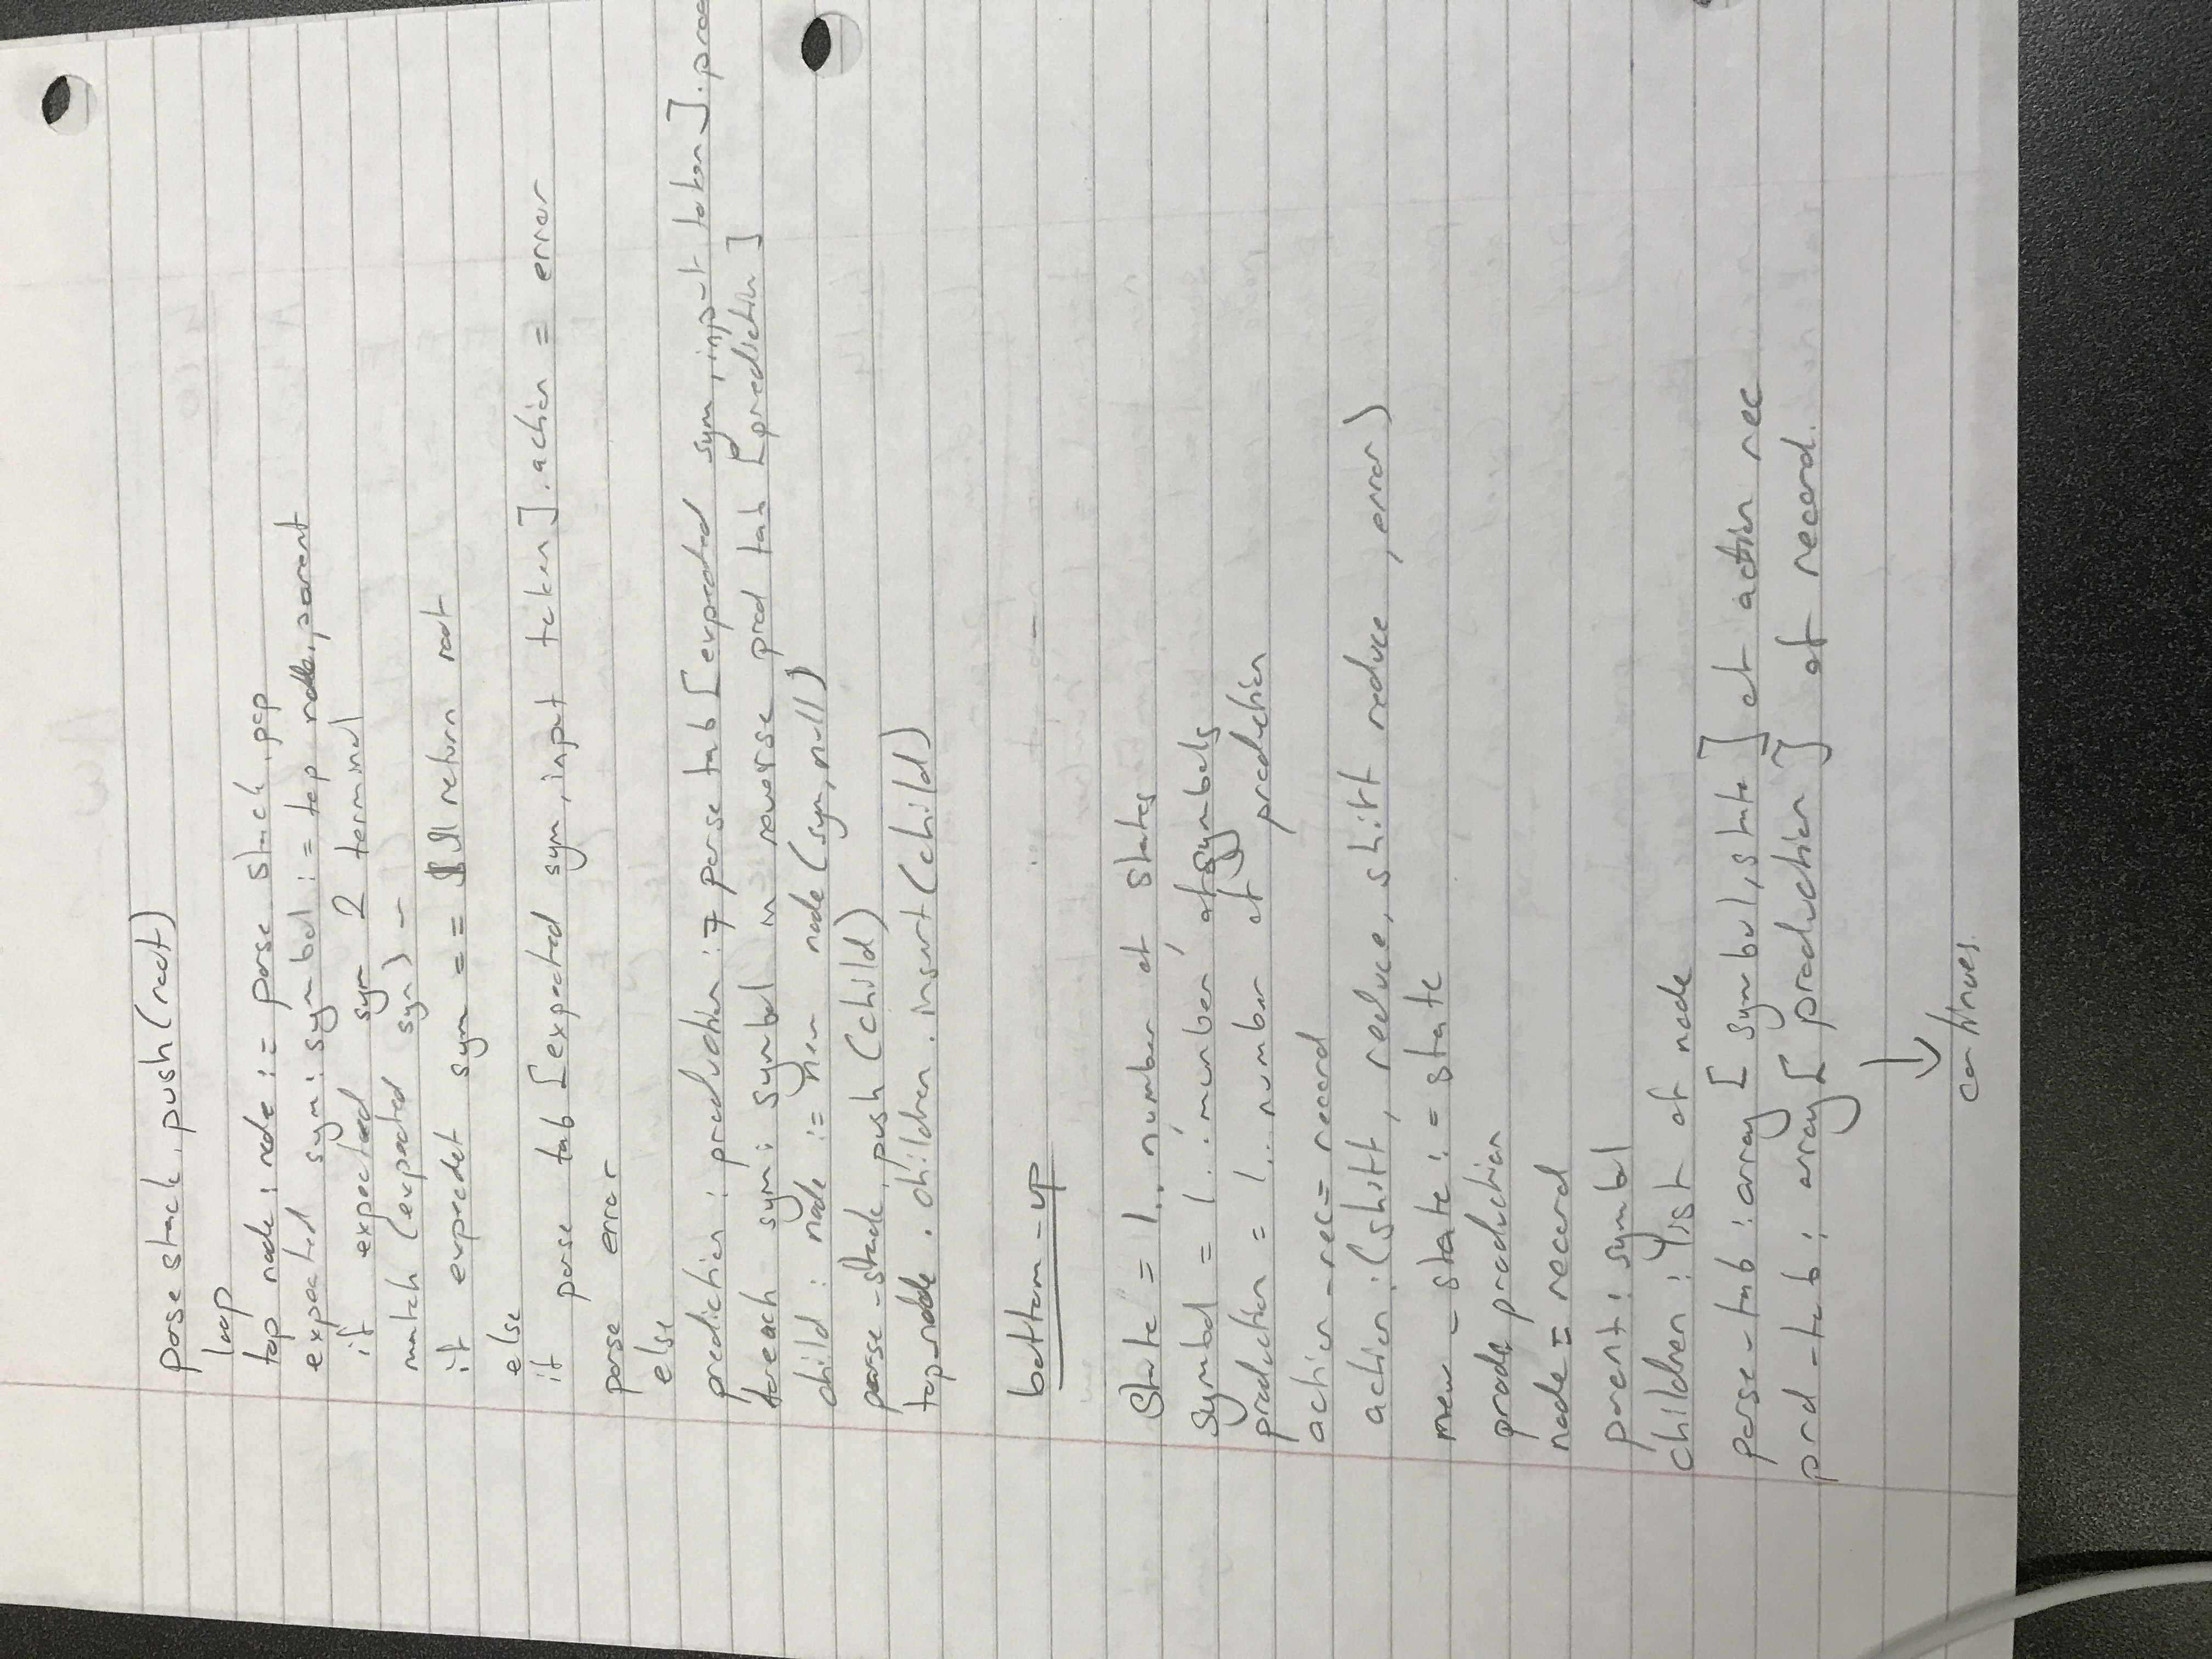 parse stack.push(root)
loop
top node : node := parse stack.pop
expected sym : symbol := top node.parent
if expected sym 2 terminal
match (expected sym) -
if expecdet sym == $$ return root
else
if parse tab [expected sym, input token].action = error
parse error
else
prediction : production := parse tab [expected sym, input token].prod
foreach sym : symbol in reverse prod tab [prediction]
child : node := new node (sym, null)
parse-stack.push (child)
top_node.children.insert (child)
bottom-up
State = 1.. number of states
symbol = 1.. number of symbols
production = 1.. number of production
action_rec= record
action : (shift, reduce, shift reduce, error)
new_state := state
prod: production
node = record
parent : symbol
children : list of node
parse-tab : array [symbol, state] of action rec
prd-tab : array [production] of record.
continues.